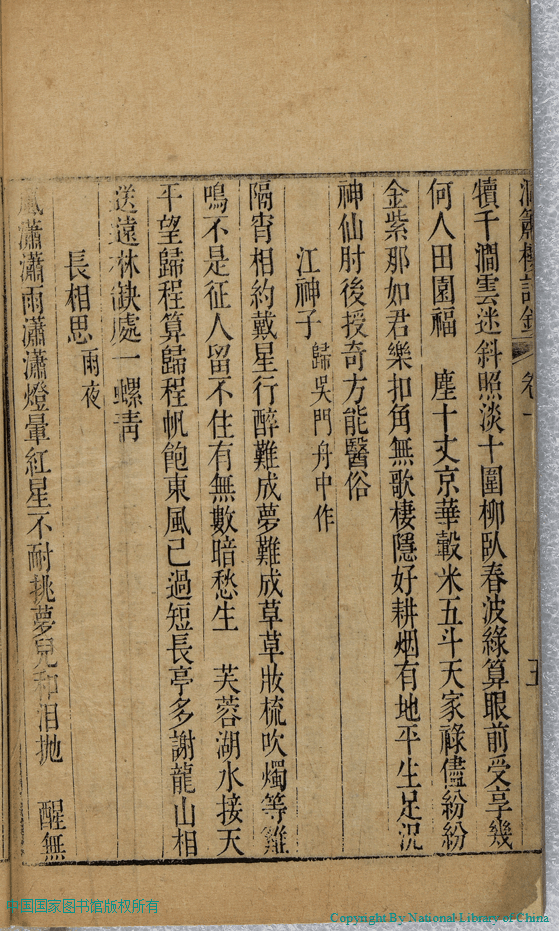 洞簫樓詩鈔 卷一 五
犢千澗雲迷斜照淡十圍柳臥春波綠算眼前受享幾
何人田園福 塵十丈京華轂米五斗天家祿儘紛紛
金紫那如君樂扣角無歌棲隱好耕烟有地平生足況
神仙肘後授奇方能醫俗
江神子 歸吳門舟中作
隔宵相約戴星行醉難成夢難成草草妝梳吹燭等雞
鳴不是征人留不住有無數暗愁生 芙蓉湖水接天
平望歸程算歸程帆飽東風已過短長亭多謝龍山相
送遠林缺處一螺青
長相思 雨夜
風瀟瀟雨瀟瀟燈暈紅星不耐挑夢兒和泪拋 醒無
中国国家图书馆版权所有
Copyright By National Library of China